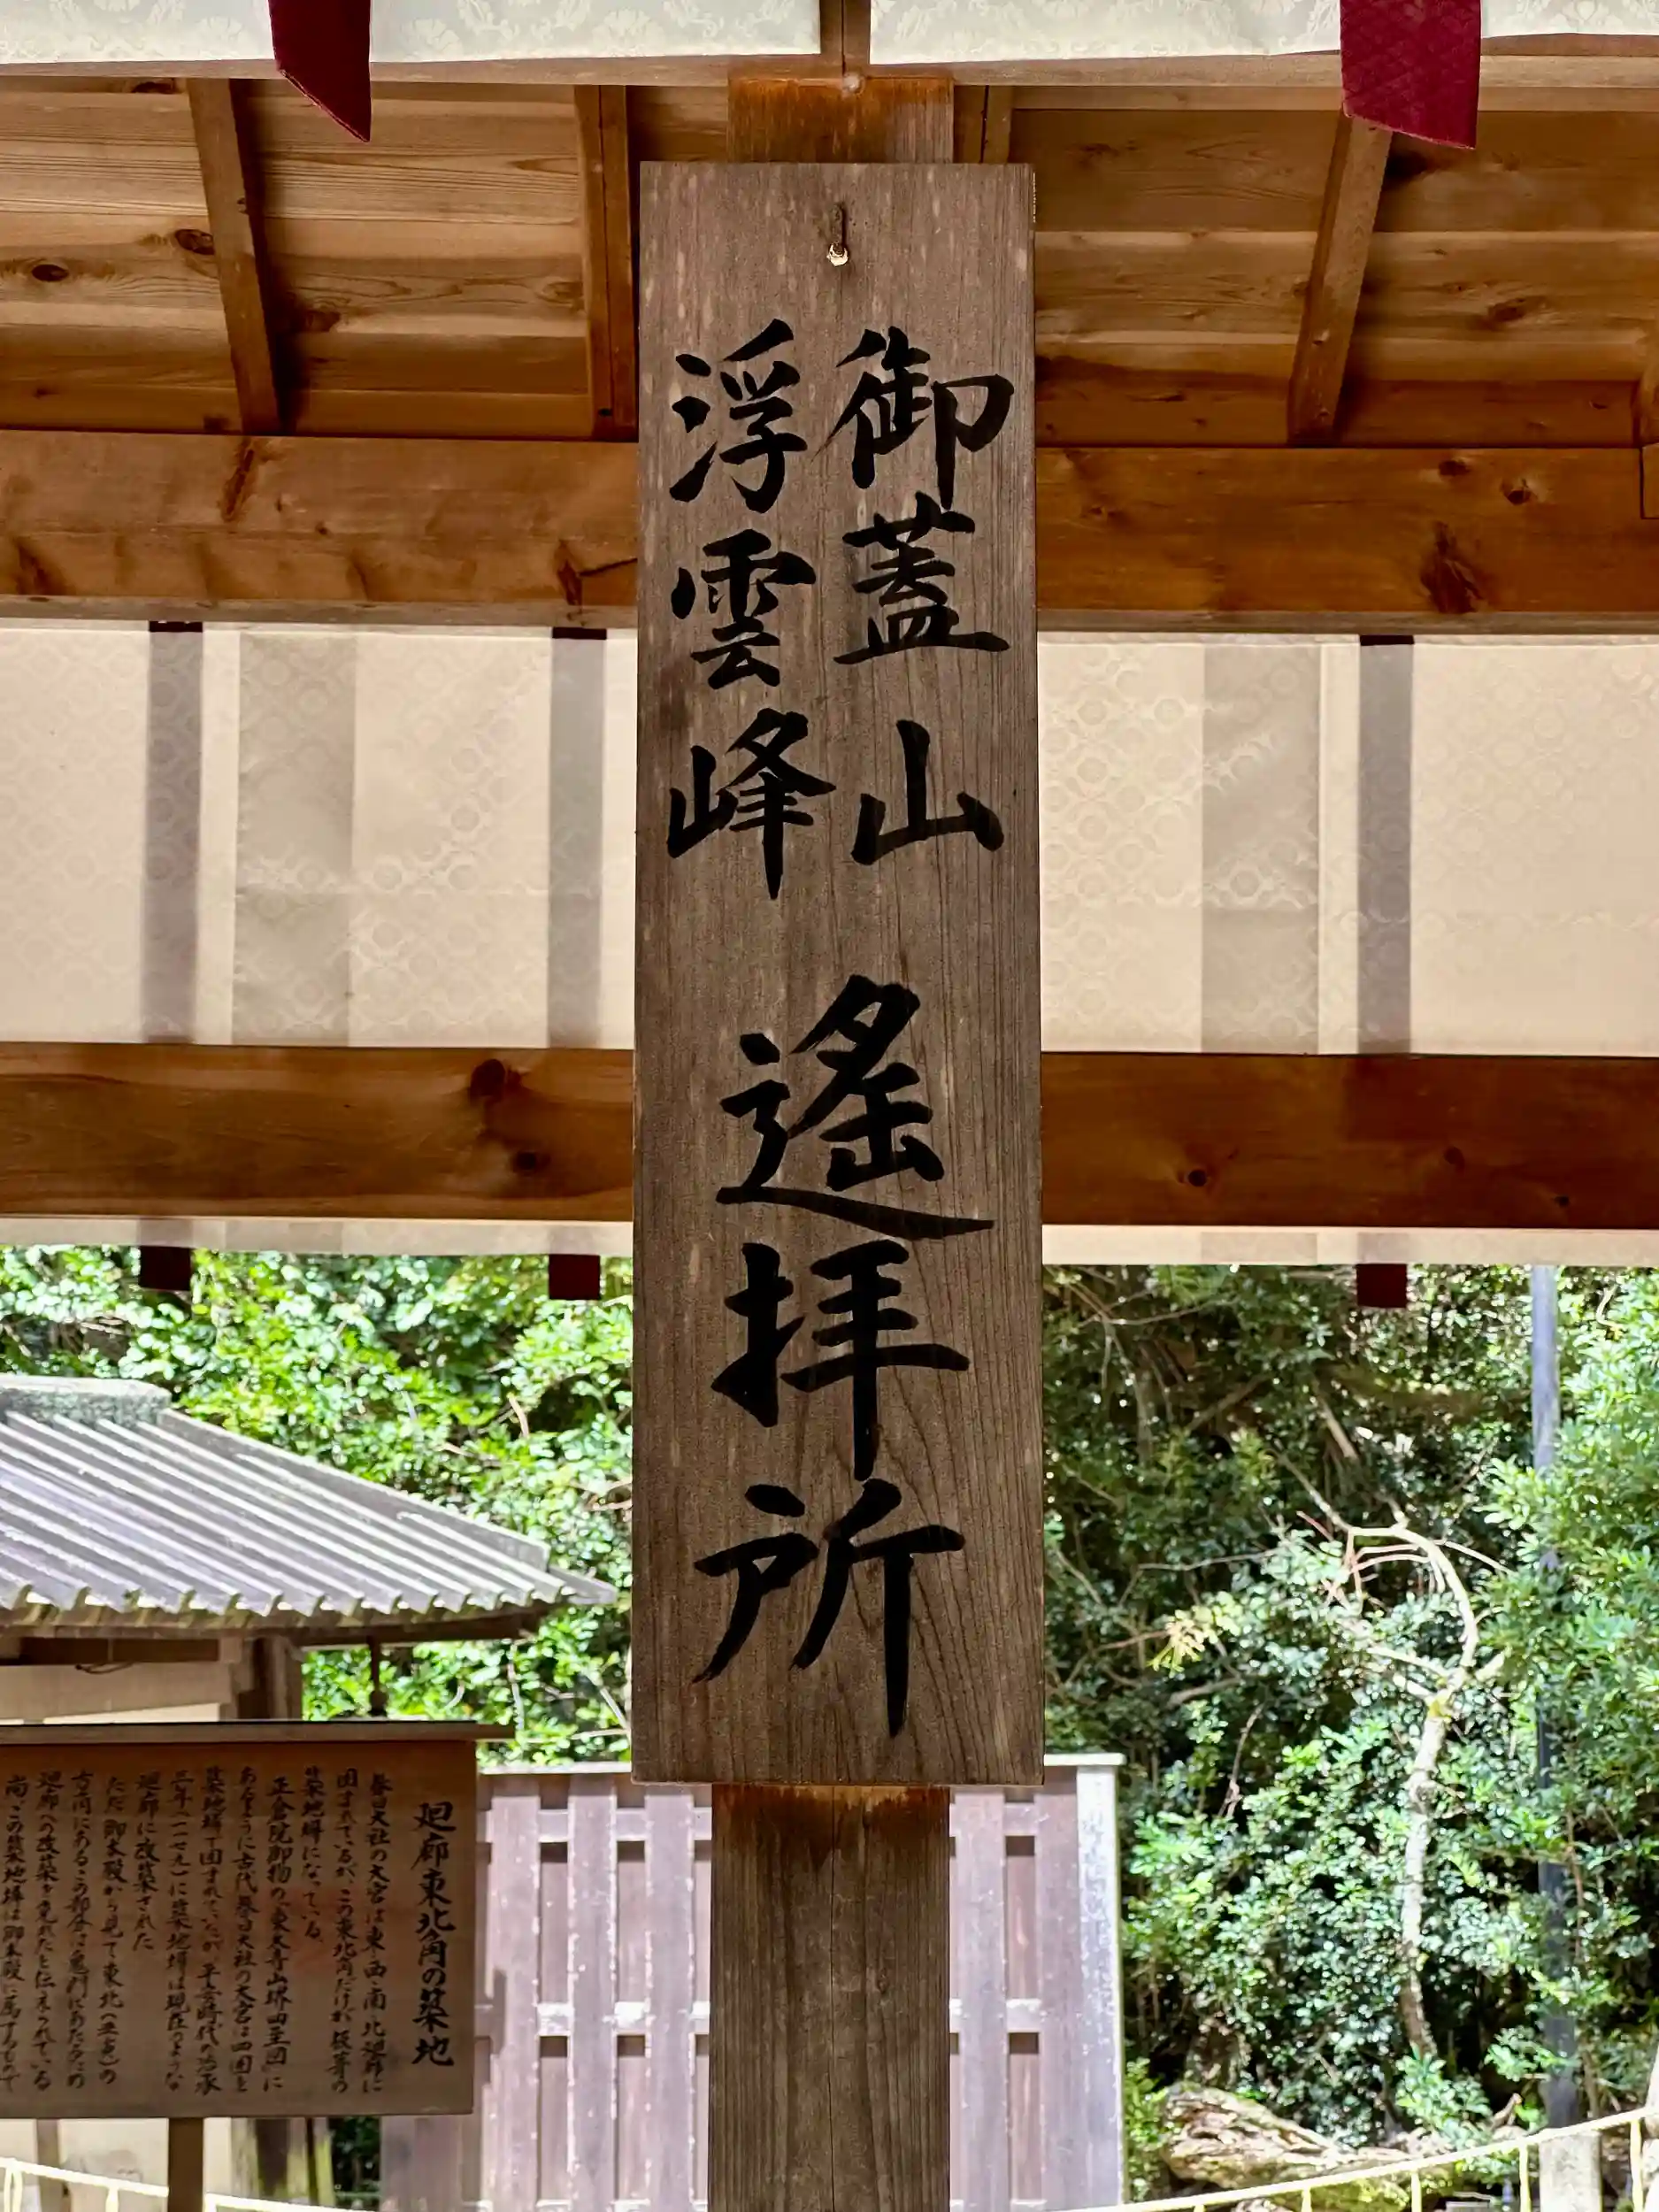 御蓋山
浮雲峰
遙拝所
廻廊東北角の築地
春日大社の大宮は東・西・南・北廻廊に
囲まれているが、この東北角だけは板葺の
築地塀になっている。
正倉院御物の「東大寺山堺四至図」に
あるように古代春日大社の大宮は四囲を
築地塀で囲まれていたが、平安時代の治承
三年(一一七九)に築地塀は現在のような
廻廊に改築された
ただ御本殿から見て東北(丑寅)の
方角にあるこの部分は鬼門にあたるため
廻廊への改築を免れたと伝えられている
尚、この築地塀は御本殿に属するもので